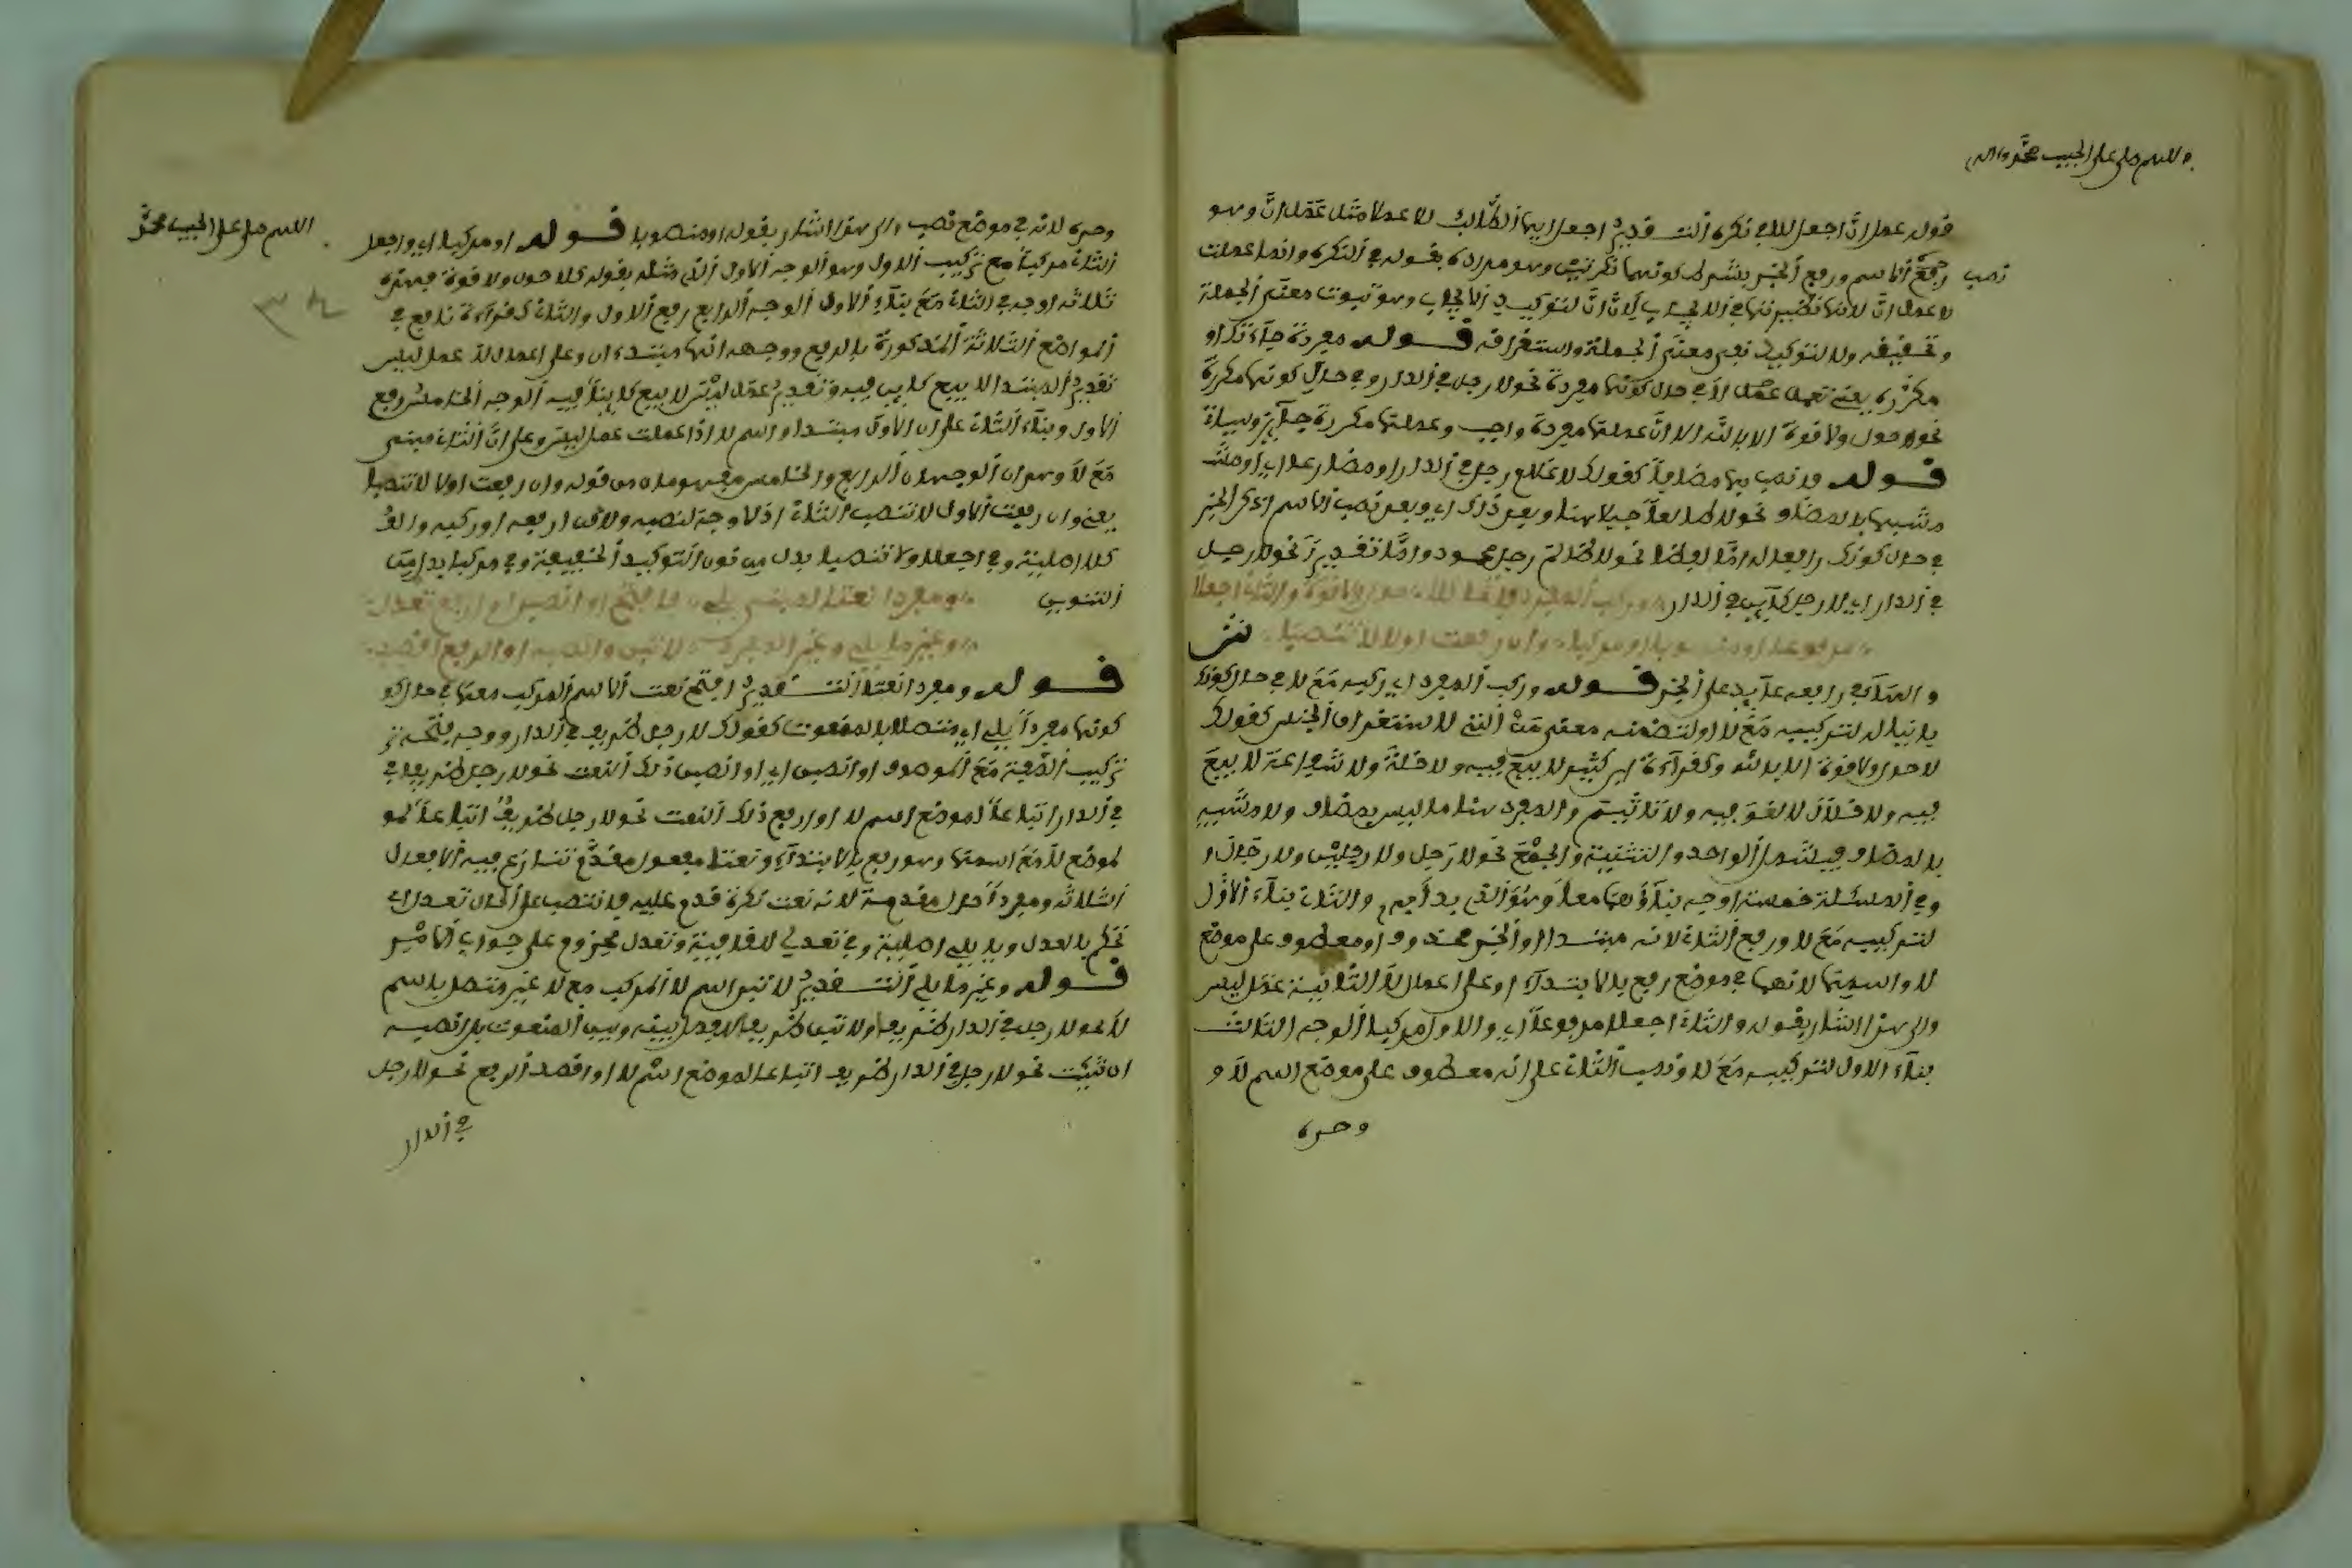 اللهم صل على الحبيب محمد وءاله
قوله عمل ان اجعل للا في نكره التقدير اجعل ايها الطالب للا عملا مثل عمل ان وهو
نصب
رجع الاسم ورفع الخبر بشرط كونهما نكرتين وهو مراده بقوله في النكره وانما عملت
لا عمل ان لانها نظيرتها في الايجاب لان ان لتوكيد الايجاب وهو ثبوت معنى الجملة
وتحقيقه ولا لتوكيد نفي معنى الجملة واستغراقه قوله مفردة جاءتك او
مكررة يعني تعمل عمل ان في حال كونها مفردة نحو لا رجل في الدار وفي حال كونها مكررة
نحو لا حول ولا قوة الا بالله الا ان عملها مفردة واجب وعملها مكررة جائز
قوله فانصب بها مضافا كقولك لا غلام رجل في الدار او مضارعه اي او
مشبها بالمضاف نحو لا طالعا جبلا هنا وبعد ذاك اي وبعد نصب الاسم اذكر الخبر
في حال كونك رافعا له اما لفظا نحو لا ظالم رجل محمود واما تقديرا نحو لا رجل
في الدار اي لا رجل كائن في الدار وركب المفرد فاتحا كلا حول ولا قوة والثان اجعلا
مرفوعا او منصوبا او مركبا وان رفعت اولا لا تنصبا
والهاء في رافعه عائد على الخبر قوله وركب المفرد اي ركبه مع لا في حال كونك
بانيا له لتركيبه مع لا او لتضمنه معنى من التي لاستغراق الجنس كقولك
لا حول ولا قوة الا بالله وكقراءة ابن كثير لا بيع فيه ولا خلة ولا شفاعة لا بيع
فيه ولا خلال لا لغو فيه ولا تاثيم والمفرد هنا ما ليس بمضاف ولا مشبه
بالمضاف فيشمل الواحد والتثنية والجمع نحو لا رجل ولا رجلين ولا رجال و
وفي المسئلة خمسة اوجه بناؤهما معا وهو الذي بدا به والثان بناء الاول
لتركيبه مع لا ورفع الثان لانه مبتدا والخبر محذوف او معطوف على موضع
لا واسمها لانهما في موضع رفع بالابتداء او على اعمال لا الثانية عمل ليس
والى هذا اشار بقوله والثان اجعلا مرفوعا اي والاول مركبا الوجه الثالث
بناء الاول لتركيبه مع لا ونصب الثان على انه معطوف على موضع اسم لا و
وحده
اللهم صل على الحبيب محمد
وحده لانه في موضع نصب والى هذا اشار بقوله او منصوبا قوله او مركبا اي واجعل
الثان مركبا مع تركيب الاول وهو الوجه الاول الذي مثله بقوله كلا حول ولا قوة فهذه
ثلاثة اوجه في الثان مع بناء الاول الوجه الرابع رفع الاول والثان كقراءة نافع في
المواضع الثلاثة المذكورة بالرفع ووجهه انهما مبتدءان وعلى اعمال لا عمل ليس
تقدير المبتدا لا بيع كائن فيه وتقدير عمل ليس لا بيع كاينا فيه الوجه الخامس رفع
الاول وبناء الثان على ان الاول مبتدا او اسم لا اذا عملت عمل ليس وعلى ان الثان مبني
مع لا وهذان الوجهان الرابع والخامس مفهومان من قوله وان رفعت اولا لا تنصبا
يعني وان رفعت الاول لا تنصب الثان اذ لا وجه لنصبه ولاكن ارفعه او ركبه والف
كلا اصلية وفي اجعلا ولا تنصبا بدل من نون التوكيد الخفيفة وفي مركبا بدل من
التنوين ومفردا نعتا لمبني يلي فافتح او انصبن او ارفع تعدل
وغير ما يلي وغير المفرد لا تبن وانصبه او الرفع اقصد
قوله ومفردا نعتا التقدير افتح نعت الاسم المركب معها في حال كو
كونها مفردا يلي اي متصلا بالمنعوت كقولك لا رجل ظريف في الدار ووجه فتحه تر
تركيب الصفة مع الموصوف او انصبن اي او انصبن ذلك النعت نحو لا رجل ظريفا في
في الدار اتباعا لموضع اسم لا او ارفع ذلك النعت نحو لا رجل ظريف اتباعا لمو
لموضع لا مع اسمها وهو رفع بالابتداء ونعتا مفعول مقدم تنازع فيه الافعال
الثلاثة ومفردا حال مقدمة لانه نعت نكرة قدم عليه فانتصب على الحال تعدل اي
تحكم بالعدل وياء يلي اصلية وفي تعدل للقافية وتعدل مجزوم على جواب الامر
قوله وغير ما يلي التقدير لا تبن اسم لا المركب مع لا غير متصل باسم
لا نحو لا رجل في الدار ظريفا ولا تبن ظريفا للفصل بينه وبين المنعوت بل انصبه
ان شئت نحو لا رجل في الدار ظريفا اتباعا لموضع اسم لا او اقصد الرفع نحو لا رجل
في الدار